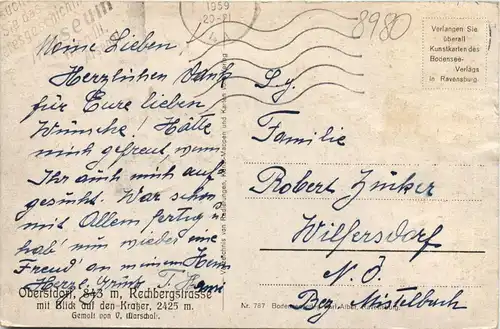 1959
museum
8980
Verlangen Sie
überall
Kunstkarten des
Bodensee-
Verlags
in Ravensburg.
Meine Lieben,
Herzlichen Dank
für Eure lieben
Wünsche! Hätte
mich gefreut, wenn
Ihr auch mich auf-
gesucht. War schon
mit Allem fertig u
hab' nun wieder eine
Freud' an meinem Heim
Herzl.
S. g.
Familie
Robert Zinker
Wilfersdorf
N. Ö.
Bez. Mistelbach
Oberstdorf, 843 m, Rechbergstrasse
mit Blick auf den Kratzer, 2425 m.
Gemalt von O. Marschall.
Nr. 787